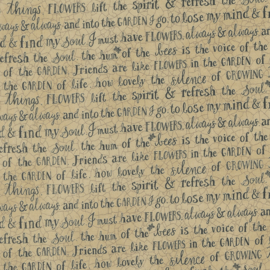 things FLOWERS lift the Spirit & refresh the Soul
always & always and into the GARDEN I go. to lose my mind & f
d & find my Soul I must have FLOWERS, always & always an
refresh the Soul the hum of the bees is the voice of the
of the GARDEN. Friends are like FLOWERS in the GARDEN OF
OF LIFE how lovely the silence of GROWING
things FLOWERS lift the Spirit & refresh the Soul
always & always and into the GARDEN I go. to lose my mind & f
d & find my Soul I must have FLOWERS, always & always an
refresh the Soul the hum of the bees is the voice of the
of the GARDEN. Friends are like FLOWERS in the GARDEN OF
OF LIFE how lovely the silence of GROWING
things FLOWERS lift the Spirit & refresh the Soul
always & always and into the GARDEN I go. to lose my mind & f
d & find my Soul I must have FLOWERS, always & always an
refresh the Soul the hum of the bees is the voice of the
of the GARDEN. Friends are like FLOWERS in the GARDEN OF
OF LIFE how lovely the silence of GROWING